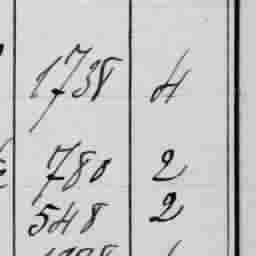 1738 4
780 2
548 2